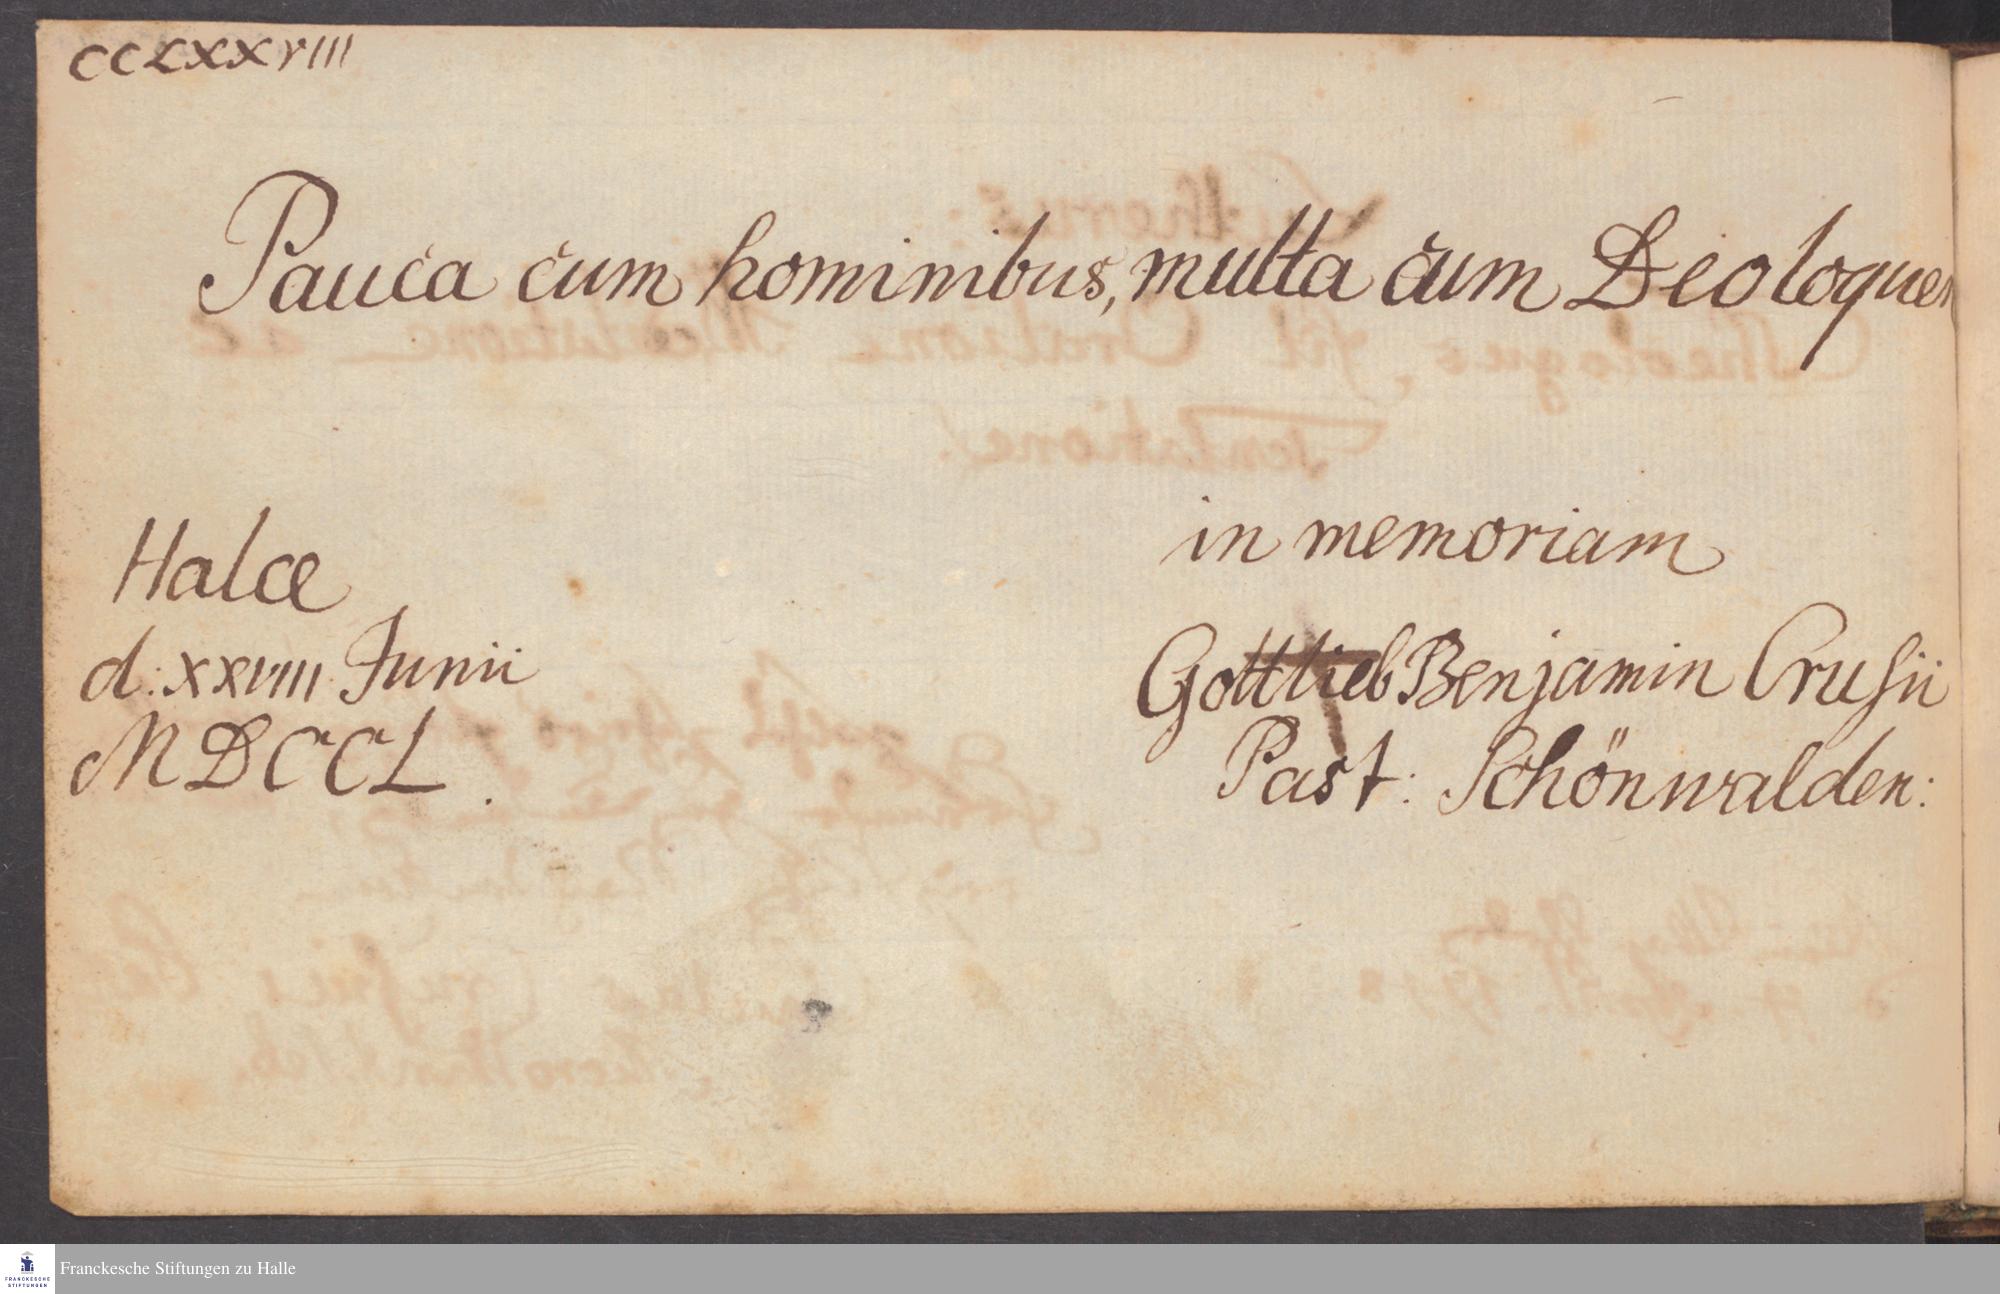 CCLXXVIII
Pauca cum hominibus, multa cum Deo loquer
Halæ
d: XXVIIII Junii
MDCCL.
in memoriam
Gottlieb Benjamin Crusii
Past: Schönwalden:
FRANCKESCHE
STIFTUNGEN
Franckesche Stiftungen zu Halle